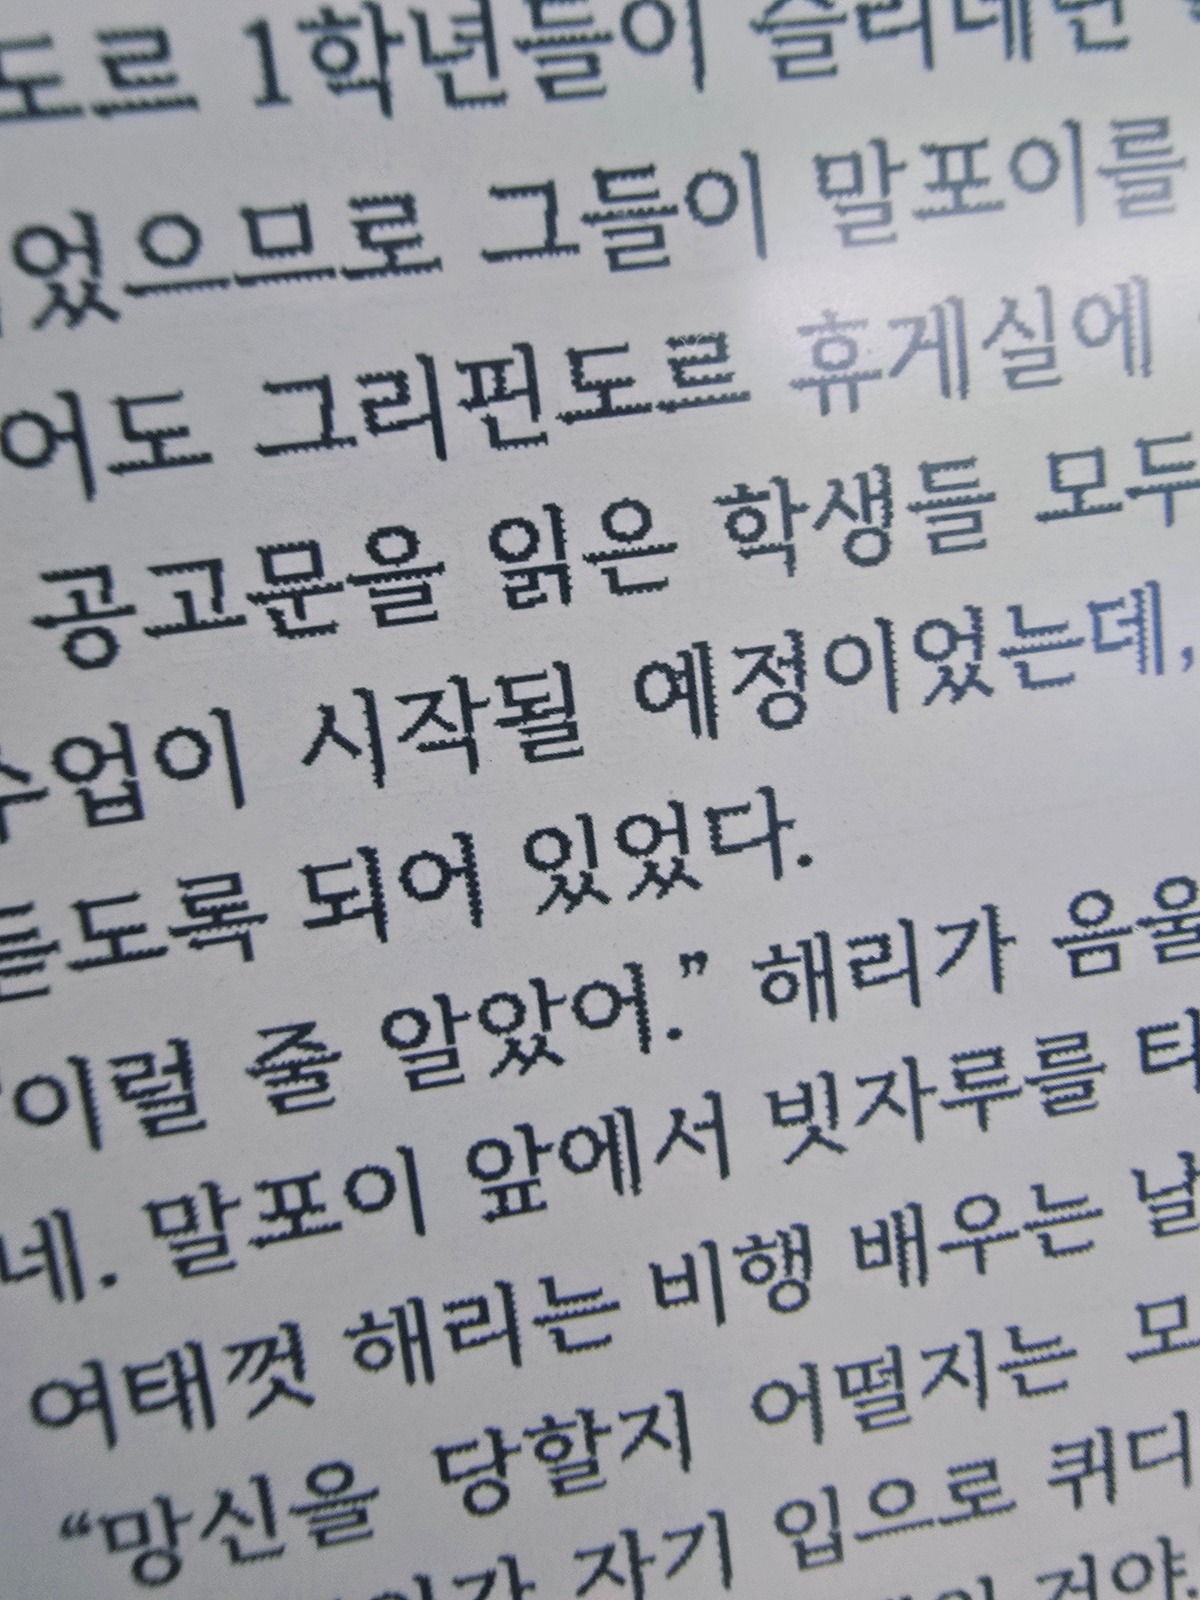 도르 1학년들이
었으므로 그들이 말포이를
어도 그리핀도르 휴게실에
공고문을 읽은 학생들 모두
수업이 시작될 예정이었는데,
들도록 되어 있었다.
이럴 줄 알았어.” 해리가 음울
네. 말포이 앞에서 빗자루를 타
여태껏 해리는 비행 배우는 날
“망신을 당할지 어떨지는 모
자기 입으로 퀴디
거야.